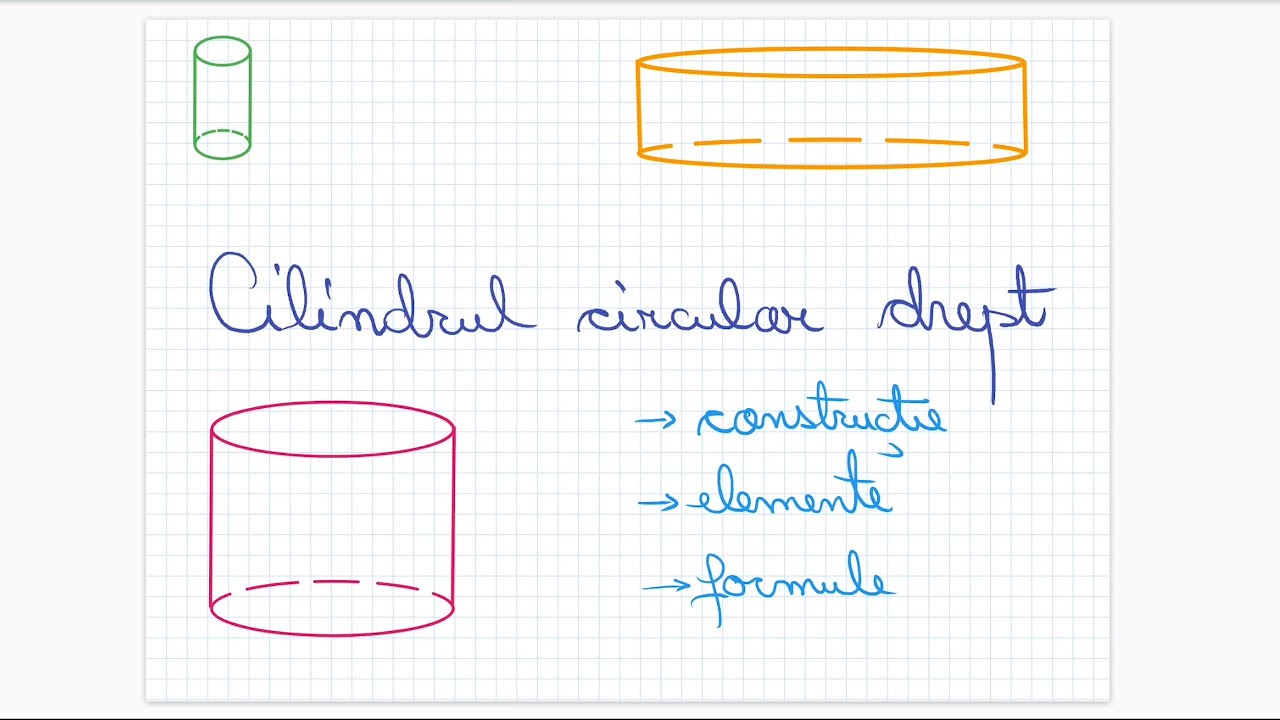 Cilindrul circular drept
→ construcție
→ elemente
→ formule